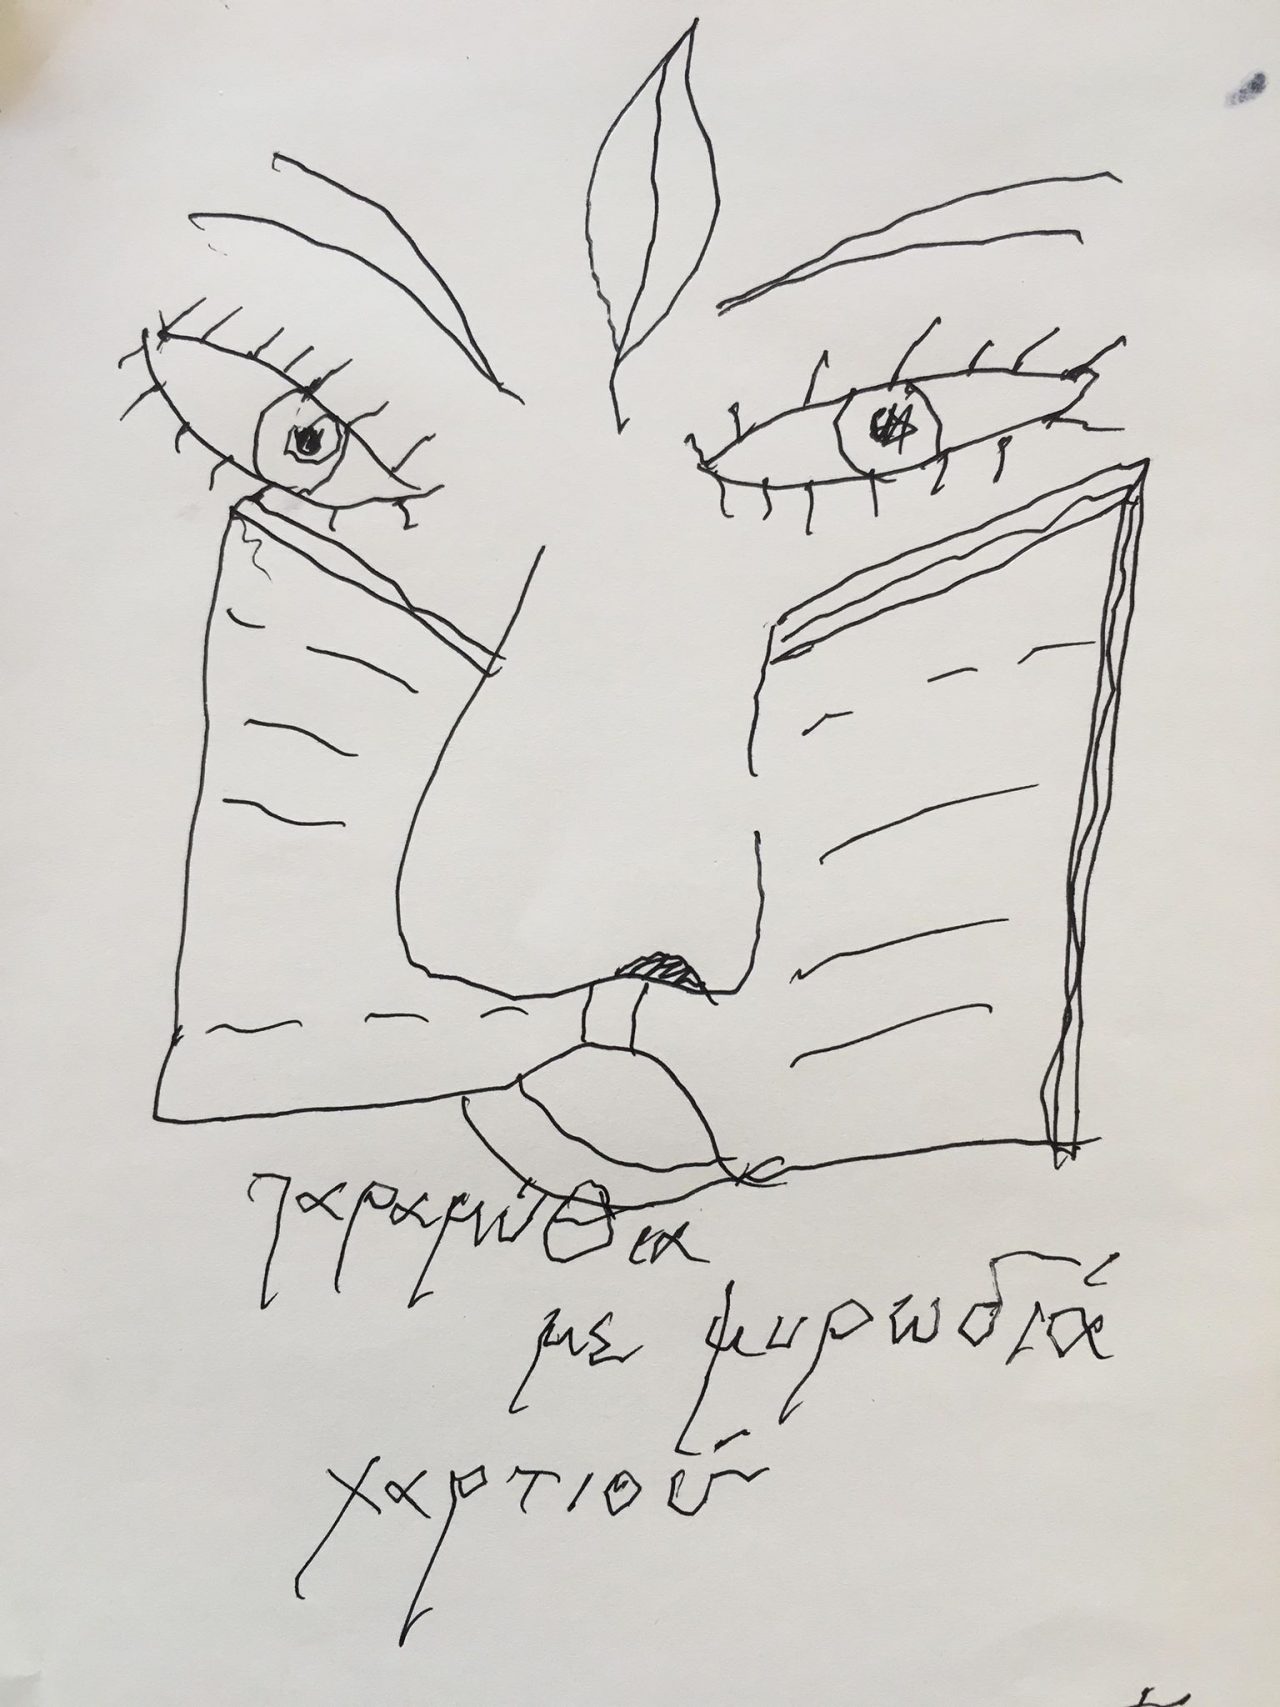 παραμύθια
με μυρωδιά
χαρτιού